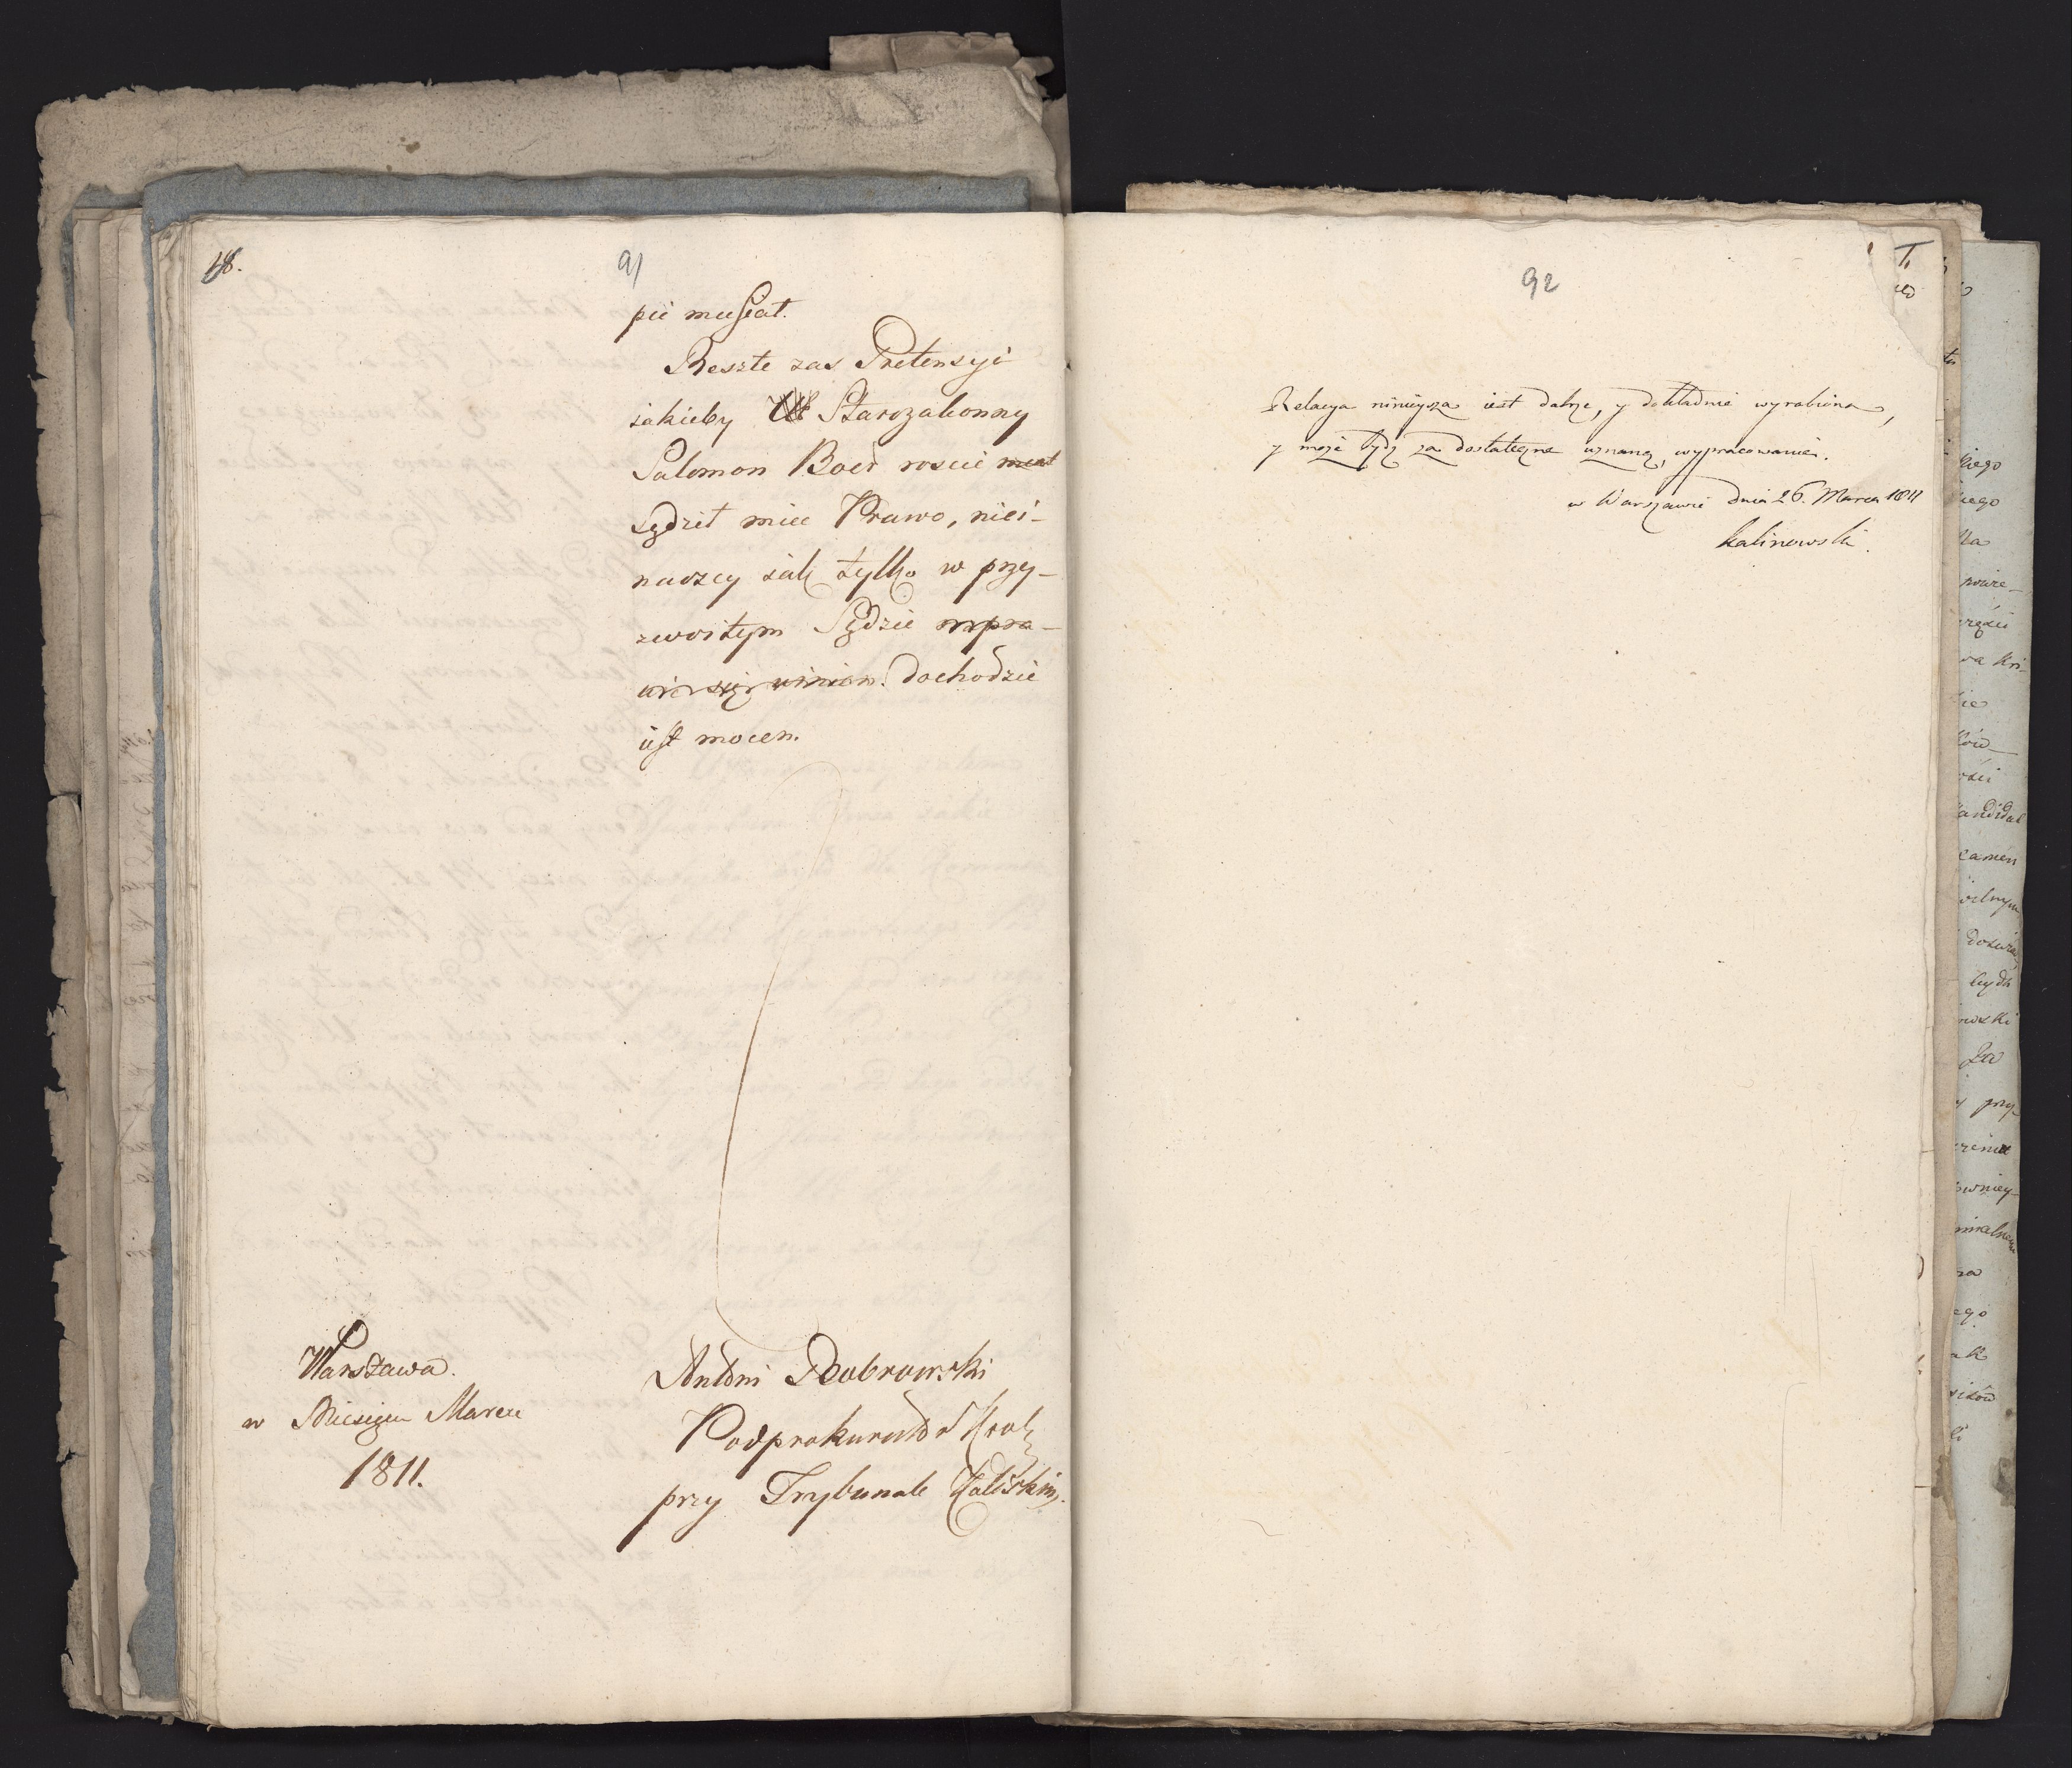 18.
91
pić musiał.
Reszte zas Pretensyi
jakieby Starozakonny
Salomon Baer roscić miał
sądził miec Prawo, niei-
naczey iak tylko w przy-
zwoitym Sądzie rospra-
wić się winien. dochodzic
iest mocen.
Warszawa.
w Miesiącu Marcu
1811.
Antoni Dobrowski
Podprokurator Krol:
przy Trybunale Kaliskim.
92
Relacya ninieysza iest dobrze, y dokładnie wyrobiona,
y może bydź za dostateczne uznaną, wypracowanie.
w Warszawie dnia 26. Marca 1811
Kalinowski.